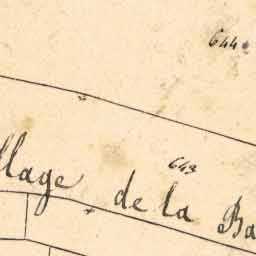 644
643
llage de la Ba